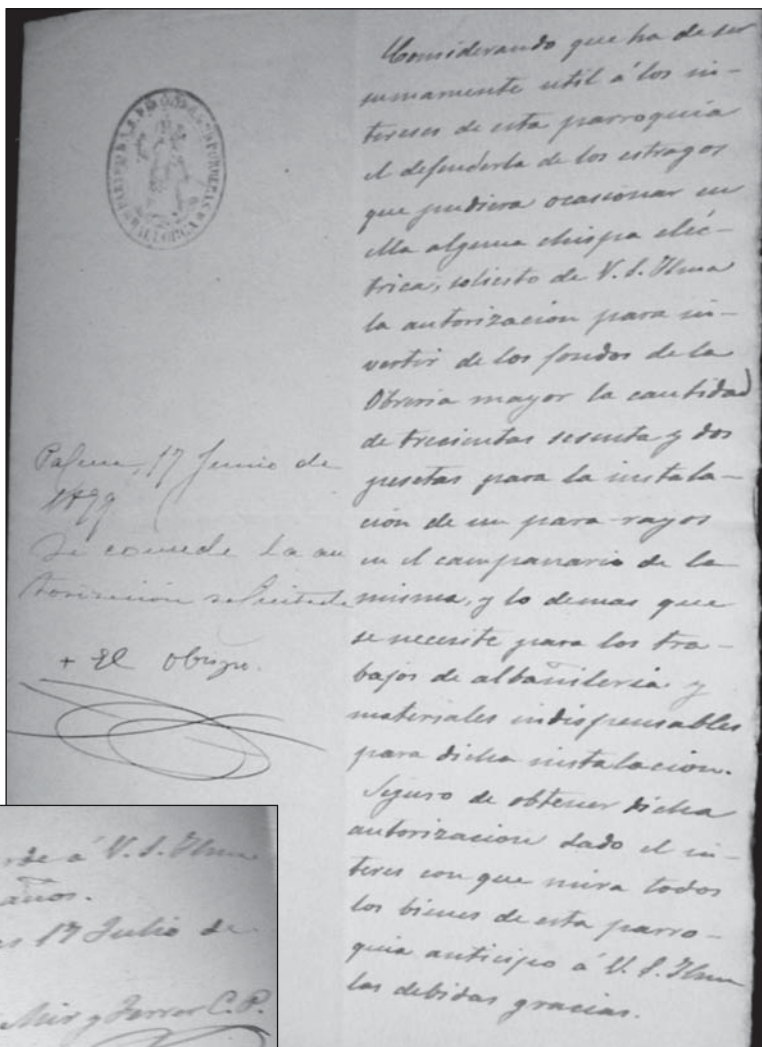 Considerando que ha de ser
sumamente util á los in-
tereses de esta parroquia
el defenderla de los estragos
que pudiera ocasionar en
ella alguna chispa eléc-
trica, solicito de V. S. Ilma
la autorizacion para in-
vertir de los fondos de la
Obreria mayor la cantidad
de trescientas sesenta y dos
pesetas para la instala-
cion de un para-rayos
en el campanario de la
misma, y lo demas que
se necesite para los tra-
bajos de albañileria y
materiales indispensables
para dicha instalacion.
Seguro de obtener dicha
autorizacion dado el in-
teres con que mira todos
los bienes de esta parro-
quia anticipo á V. S. Ilma
las debidas gracias.
MALLORCA
Palma, 17 Junio de
1899
Se concede la au
torización solicitada
+ El Obispo.
á V. S. Ilma
años.
17 Julio de
Mir y Ferrer C. P.